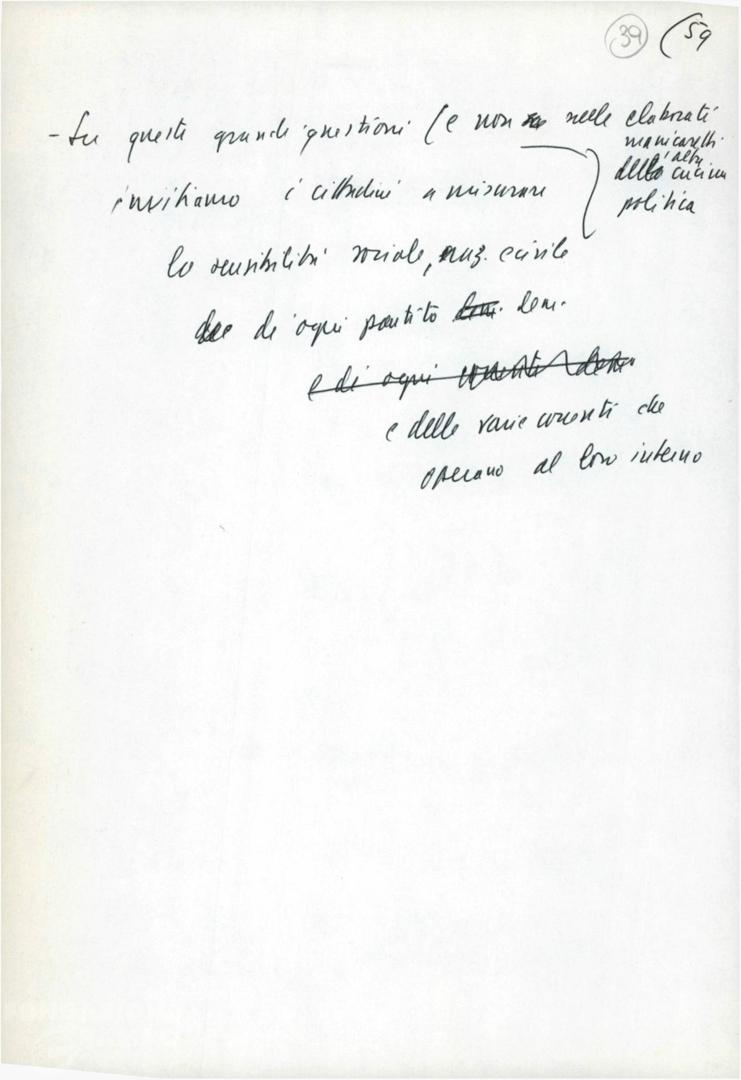 39 (59
- Su queste grandi questioni (e non nelle elaborati
manicaretti
dell'alta cucina
politica
invitiamo i cittadini a misurare
la sensibilità sociale, naz. e civile
di ogni partito dem.
e di ogni corrente dem
e delle varie correnti che
operano al loro interno